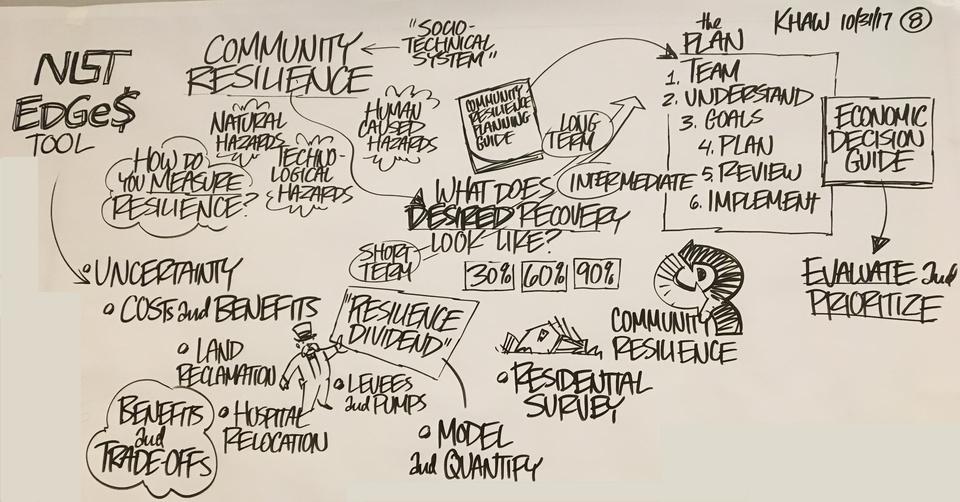 KHAW 10/31/17 8
NIST
EDGe$
TOOL
COMMUNITY
RESILIENCE
"SOCIO-
TECHNICAL
SYSTEM"
NATURAL
HAZARDS
TECHNO-
LOGICAL
HAZARDS
HUMAN
CAUSED
HAZARDS
HOW DO
YOU MEASURE
RESILIENCE?
COMMUNITY
RESILIENCE
PLANNING
GUIDE
LONG
TERM
INTERMEDIATE
SHORT
TERM
WHAT DOES
DESIRED RECOVERY
LOOK LIKE?
30% 60% 90%
the
PLAN
1. TEAM
2. UNDERSTAND
3. GOALS
4. PLAN
5. REVIEW
6. IMPLEMENT
ECONOMIC
DECISION
GUIDE
EVALUATE and
PRIORITIZE
UNCERTAINTY
COSTS and BENEFITS
LAND
RECLAMATION
HOSPITAL
RELOCATION
LEVEES
and PUMPS
BENEFITS
and
TRADE-OFFS
"RESILIENCE
DIVIDEND"
MODEL
and QUANTIFY
COMMUNITY
RESILIENCE
RESIDENTIAL
SURVEY